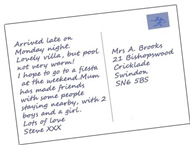 Arrived late on
Monday night.
Lovely villa, but pool
not very warm!
I hope to go to a fiesta
at the weekend. Mum
has made friends
with some people
staying nearby, with 2
boys and a girl.
Lots of love
Steve XXX
Mrs A. Brooks
21 Bishopswood
Cricklade
Swindon
SN6 5BS